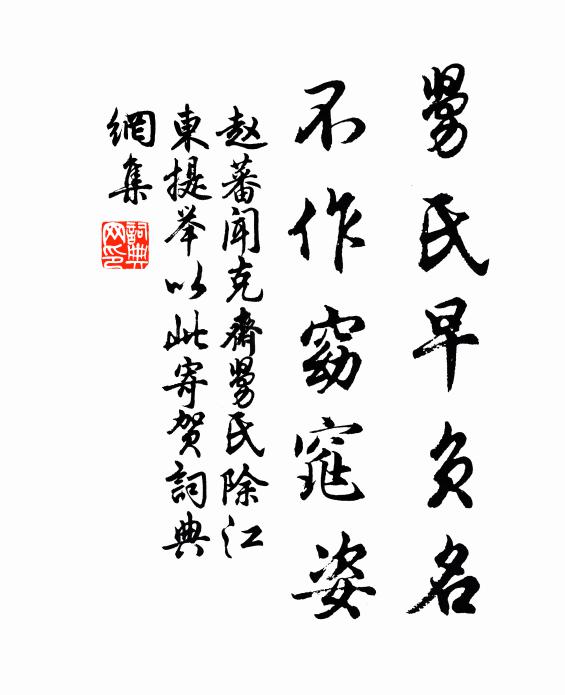 舅氏早负名
不作窈窕姿
赵蕃闻克齋舅氏除江
東提举以此寄贺詞典
網集
詞典
网印